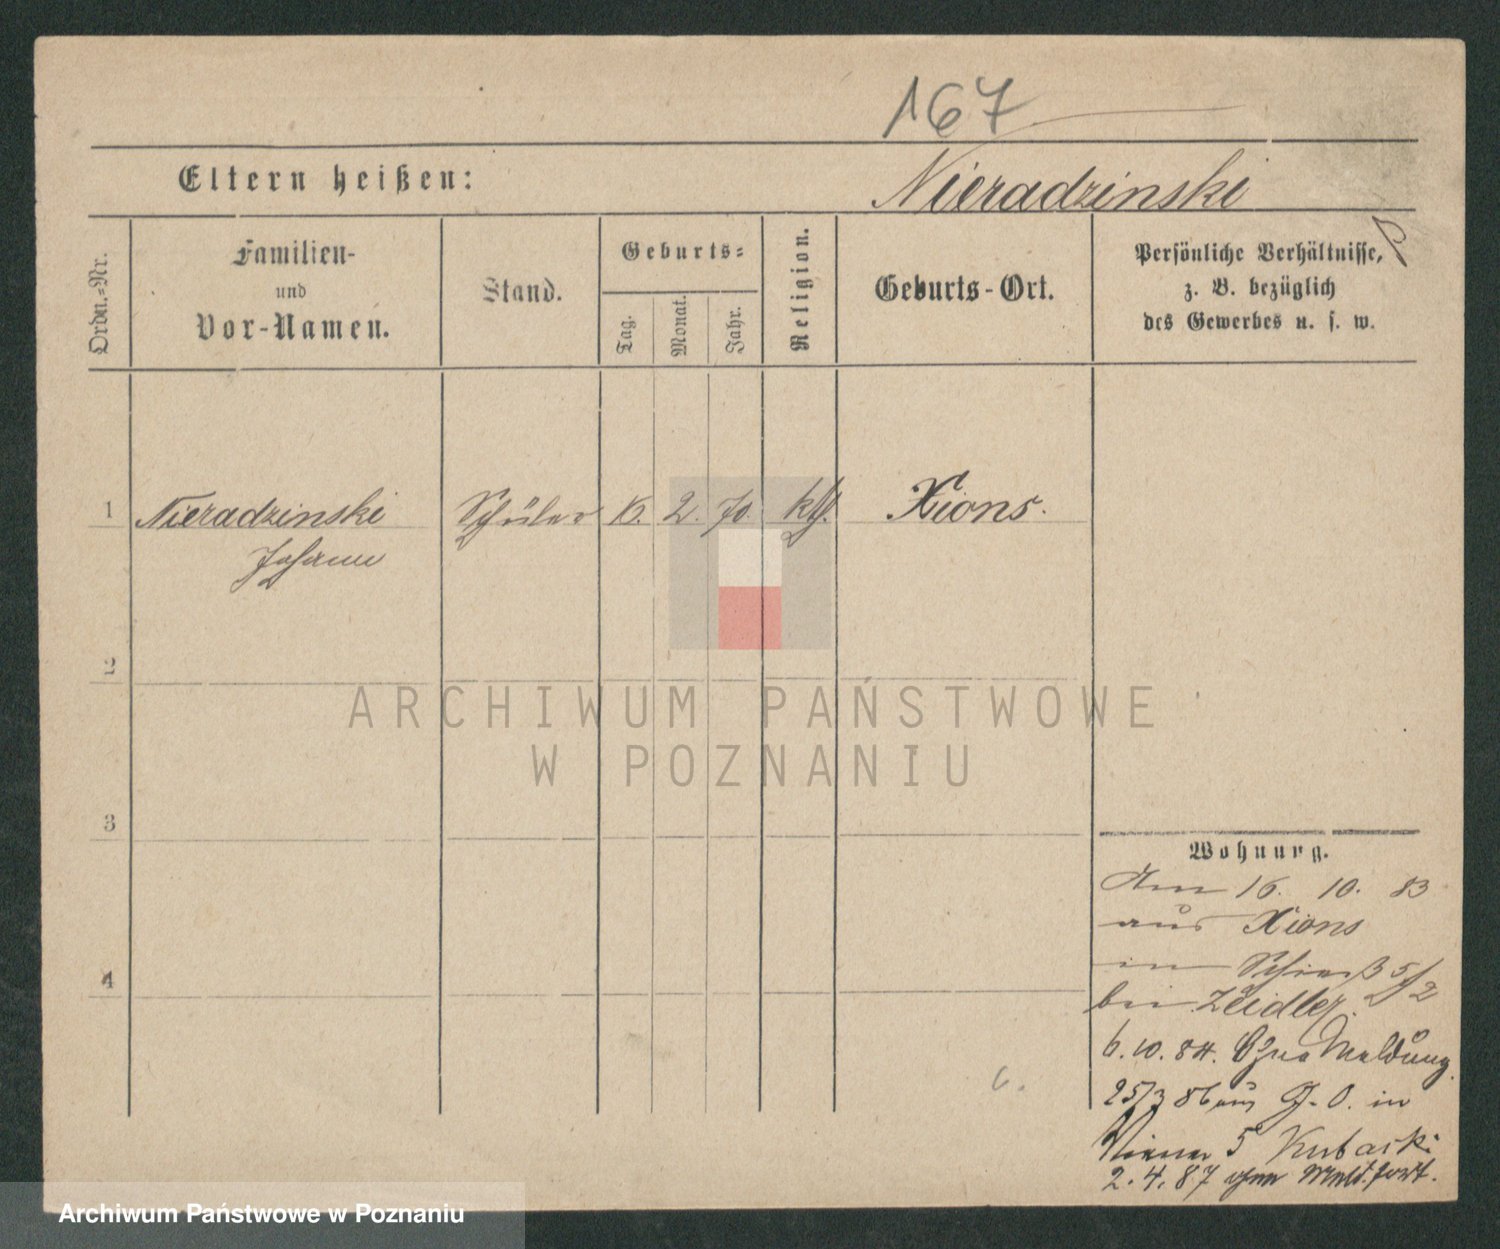 167
Eltern heißen:
Nieradzinski
Ordn.-Nr.
Familien-
und
Vor-Namen.
Stand.
Geburts-
Tag.
Monat.
Jahr.
Religion.
Geburts-Ort.
Persönliche Verhältnisse,
z. B. bezüglich
des Gewerbes u. s. w.
1 Nieradzinski Schüler 2. 70 kth. Xions.
Johann
2
ARCHIWUM PAŃSTWOWE
W POZNANIU
3
4
Wohnung.
Am 16. 10. 83
aus Xions
in 5/2
bei Zeidler.
6. 10. 84. Ohne Meldung.
25/3 86 aus G. O. in
Wiener 5 Kubaski
2. 4. 87 ohne Meld. fort.
Archiwum Państwowe w Poznaniu